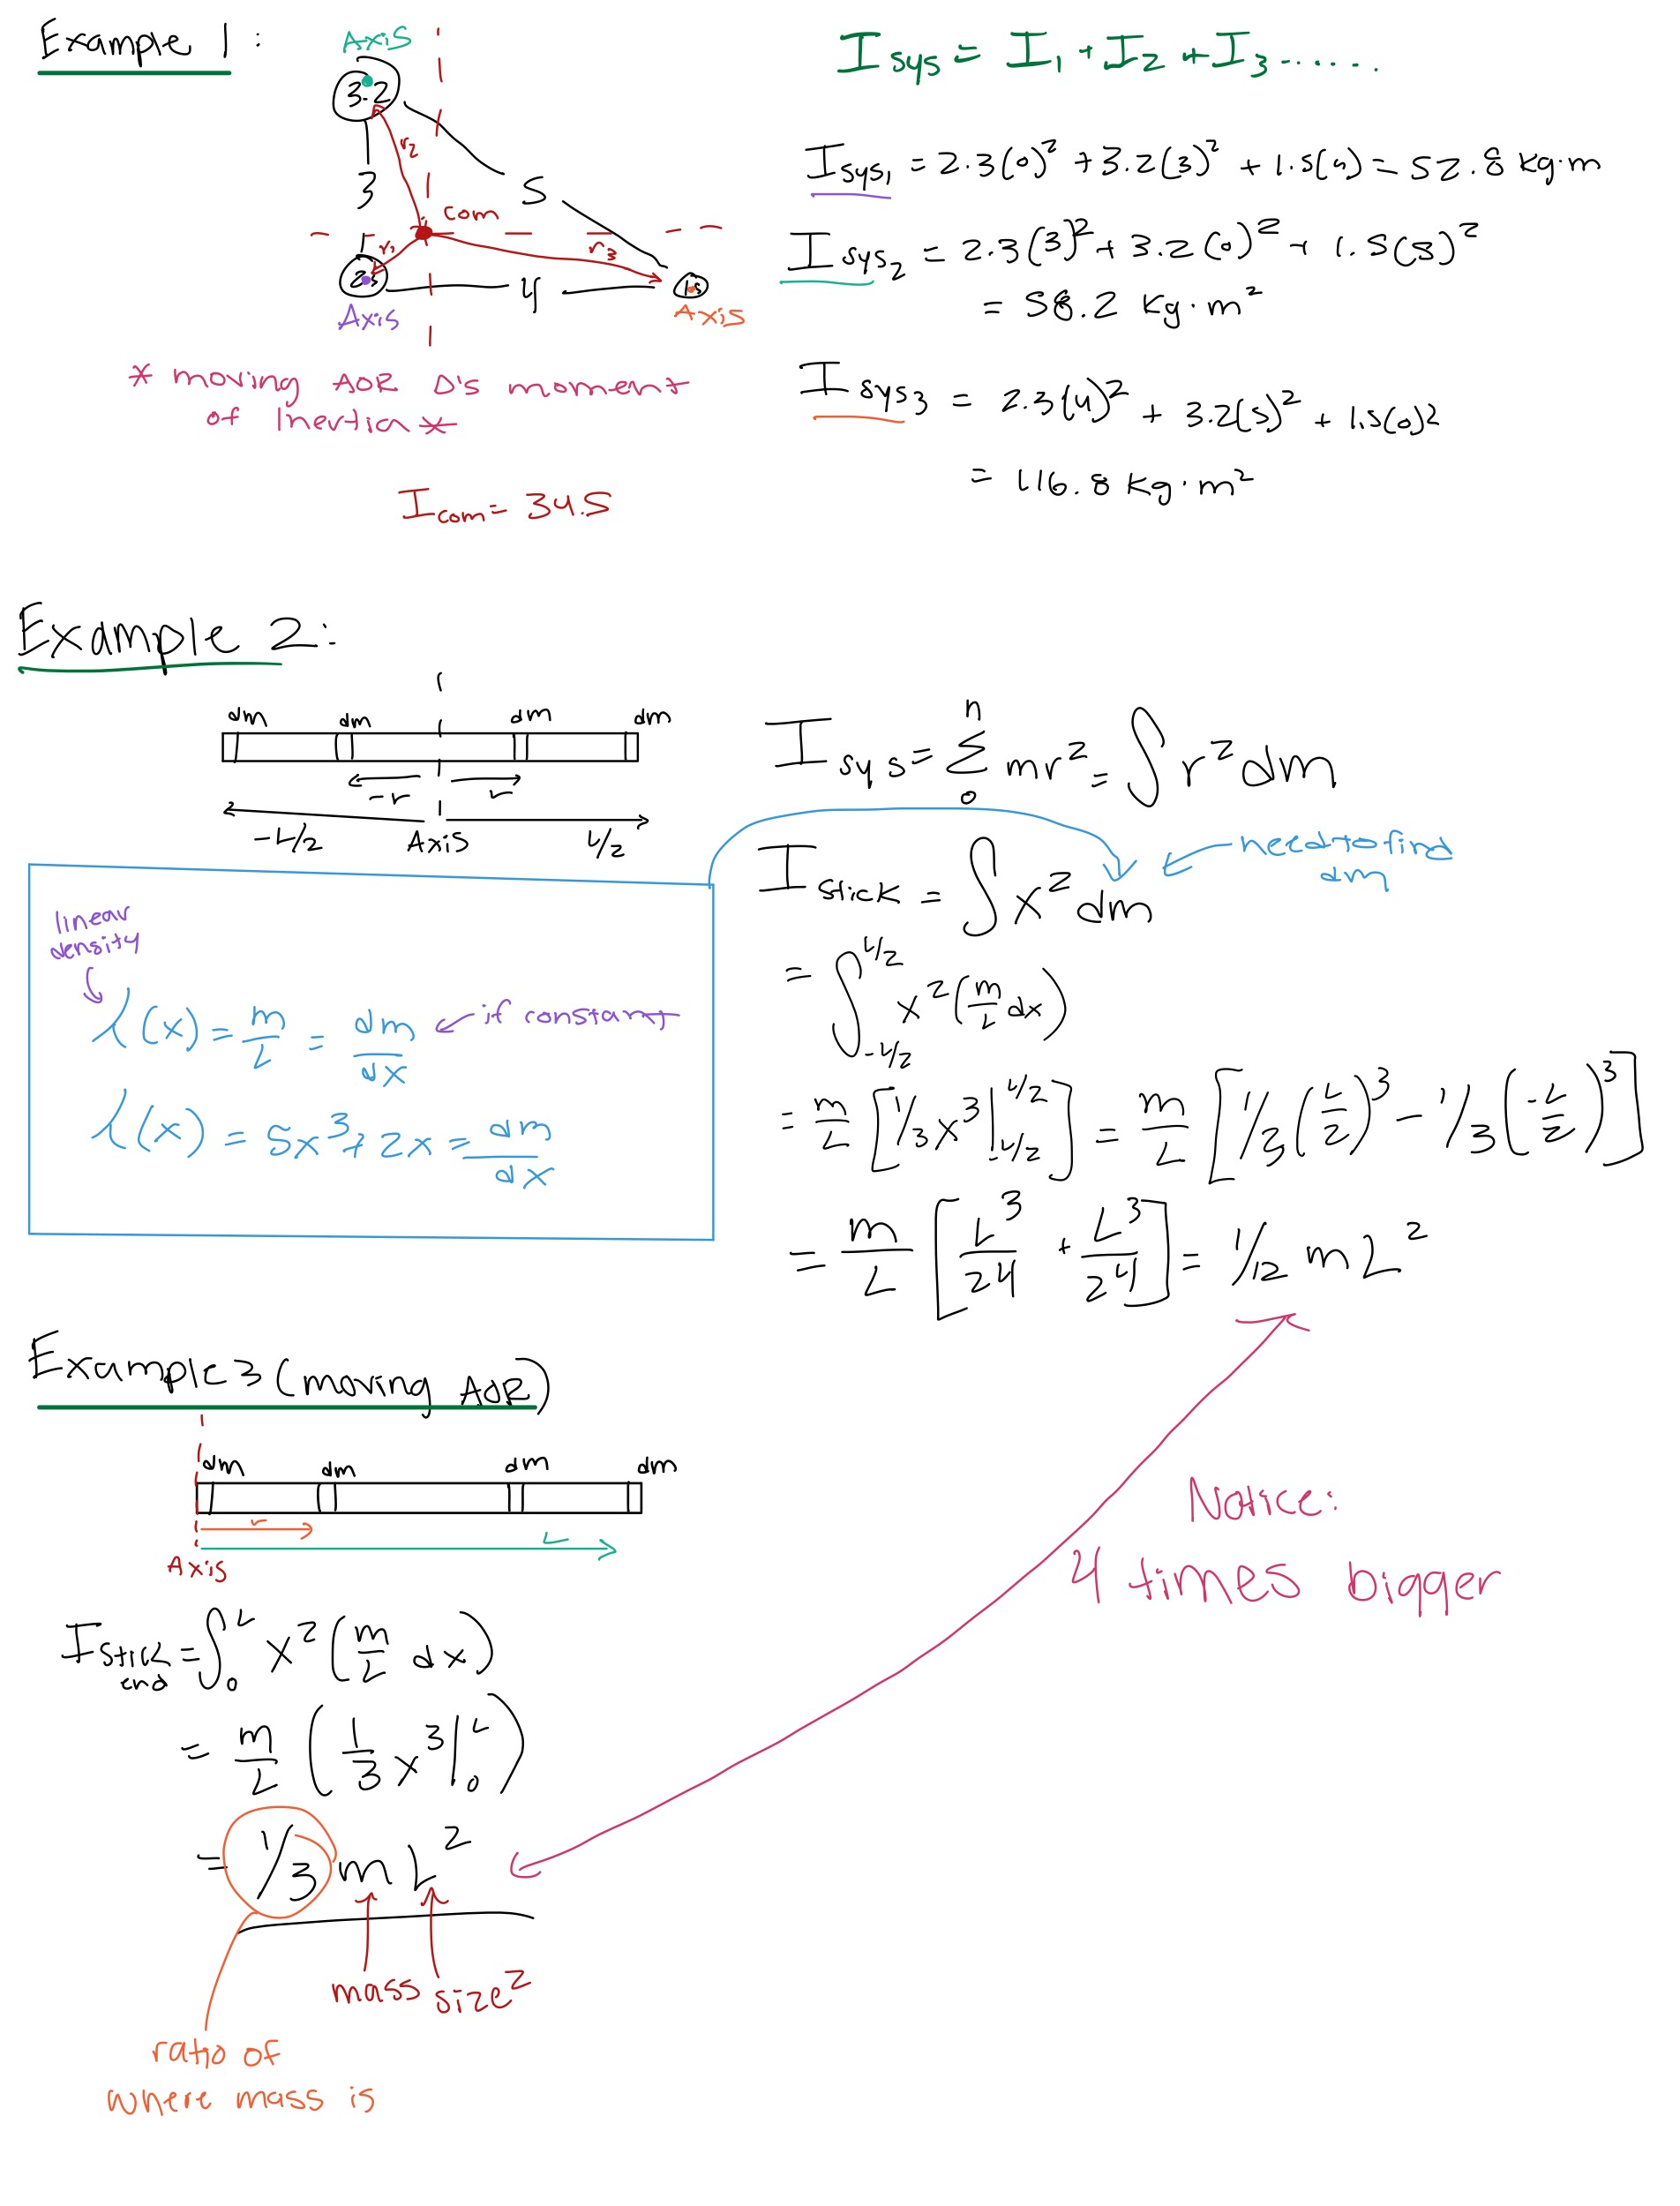 Example 1:
Axis
3.2
r₂
3
5
com
r₁
r₃
2.3
4
1.5
Axis
Axis
* moving AOR Δ's moment
of Inertia *
I com = 34.5
I sys = I₁ + I₂ + I₃ ......
I sys₁ = 2.3(0)² + 3.2(3)² + 1.5(4) = 52.8 kg·m
I sys₂ = 2.3(3)² + 3.2(0)² + 1.5(5)²
= 58.2 kg·m²
I sys₃ = 2.3(4)² + 3.2(5)² + 1.5(0)²
= 116.8 kg·m²
Example 2:
dm dm dm dm
-r r
-L/2 Axis L/2
linear
density
λ(x) = m/L = dm/dx ← if constant
λ(x) = 5x³ + 2x = dm/dx
I sys = Σ₀ⁿ mr² = ∫ r² dm
I stick = ∫ x² dm
need to find
dm
= ∫_{-L/2}^{L/2} x² (m/L dx)
= m/L [1/3 x³ |_{-L/2}^{L/2}] = m/L [1/3 (L/2)³ - 1/3 (-L/2)³]
= m/L [L³/24 + L³/24] = 1/12 mL²
Example 3 (moving AOR)
dm dm dm dm
r
L
Axis
Notice:
4 times bigger
I stick end = ∫₀ᴸ x² (m/L dx)
= m/L (1/3 x³ |₀ᴸ)
= 1/3 mL²
mass size²
ratio of
where mass is